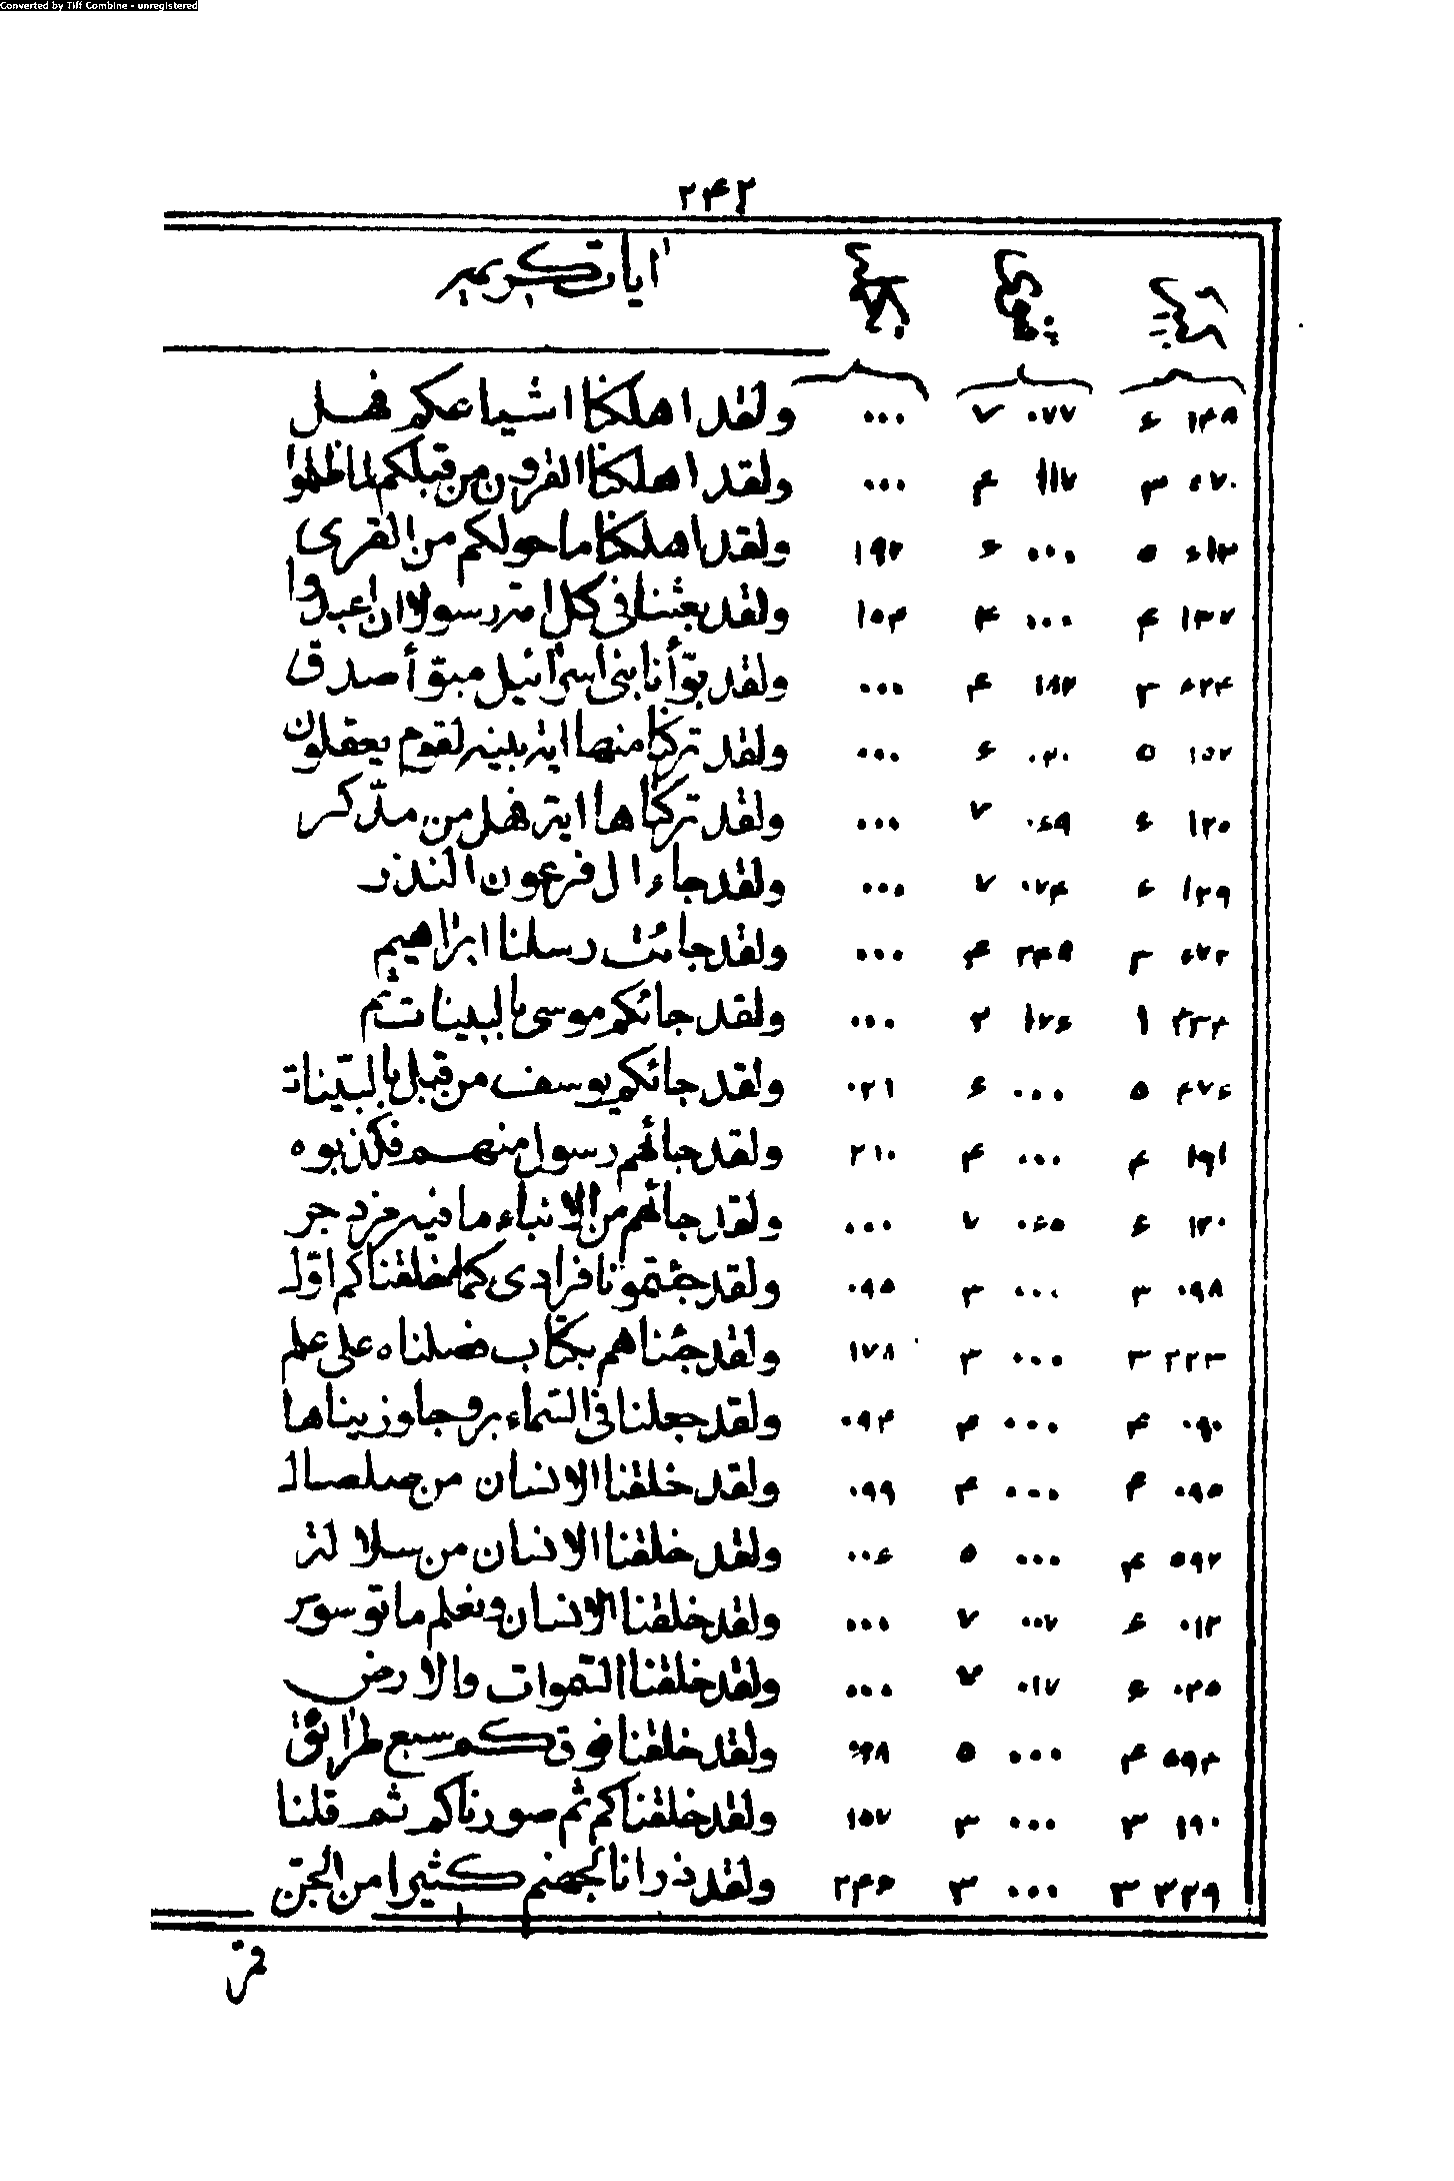 Converted by Tiff Combine - unregistered
۲۴۲
ایات کریمه
۱۴۸ ۶ ۰۷۷ ۷ ۰۰۰ ولقد اهلکنا اشیاعکم فهل
۰۷۰ ۳ ۱۱۷ ۴ ۰۰۰ ولقد اهلکنا القرون من قبلکم لما ظلموا
۶۱۳ ۵ ۰۰۰ ۶ ۱۹۲ ولقد اهلکنا ما حولکم من القری
۱۳۷ ۴ ۰۰۰ ۴ ۱۵۴ ولقد بعثنا فی کل امة رسولا ان اعبدوا
۶۲۴ ۳ ۱۸۲ ۴ ۰۰۰ ولقد بوّأنا بنی اسرائیل مبوّأ صدق
۱۵۲ ۵ ۰۲۰ ۶ ۰۰۰ ولقد ترکنا منها ایة بینة لقوم یعقلون
۱۲۵ ۶ ۰۶۹ ۷ ۰۰۰ ولقد ترکناها ایة فهل من مدّکر
۱۳۹ ۶ ۰۷۴ ۷ ۰۰۰ ولقد جاء ال فرعون النذر
۰۷۲ ۳ ۲۴۸ ۴ ۰۰۰ ولقد جائت رسلنا ابراهیم
۴۳۴ ۱ ۱۷۶ ۲ ۰۰۰ ولقد جائکم موسی بالبینات ثم
۴۷۶ ۵ ۰۰۰ ۶ ۰۲۱ ولقد جائکم یوسف من قبل بالبیّنات
۱۹۱ ۴ ۰۰۰ ۴ ۲۱۰ ولقد جائهم رسول منهم فکذبوه
۱۳۰ ۶ ۰۶۵ ۷ ۰۰۰ ولقد جائهم من الانباء ما فیه مزدجر
۰۹۸ ۳ ۰۰۰ ۳ ۰۹۵ ولقد جئتمونا فرادی کما خلقناکم اوّل
۲۲۳ ۳ ۰۰۰ ۳ ۱۷۸ ولقد جئناهم بکتاب فصلناه علی علم
۰۹۰ ۴ ۰۰۰ ۴ ۰۹۴ ولقد جعلنا فی السّماء بروجا وزیناها
۰۹۵ ۴ ۰۰۰ ۴ ۰۹۹ ولقد خلقنا الانسان من صلصال
۵۹۲ ۴ ۰۰۰ ۵ ۰۰۶ ولقد خلقنا الانسان من سلالة
۰۱۳ ۶ ۰۰۷ ۷ ۰۰۰ ولقد خلقنا الانسان ونعلم ما توسوس
۰۳۵ ۶ ۰۱۷ ۷ ۰۰۰ ولقد خلقنا السّموات والارض
۵۹۴ ۴ ۰۰۰ ۵ ولقد خلقنا فوقکم سبع طرائق
۱۹۰ ۳ ۰۰۰ ۳ ۱۵۷ ولقد خلقناکم ثم صورناکم ثم قلنا
۲۲۹ ۳ ۰۰۰ ۳ ۲۴۶ ولقد ذرانا لجهنم کثیرا من الجنّ